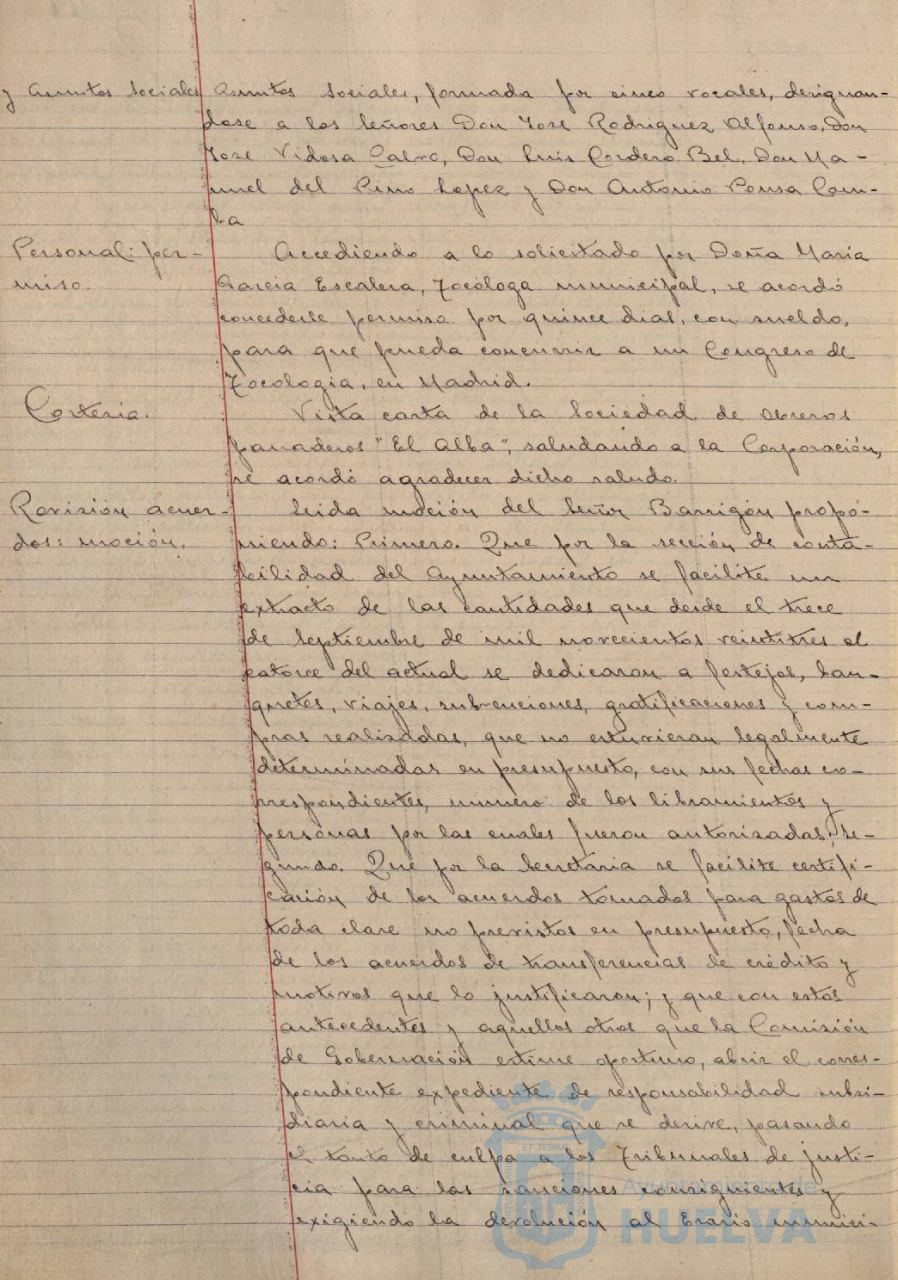 y Asuntos Sociales
Asuntos Sociales, formada por cinco vocales, designan-
dose a los Señores Don Jose Rodriguez Alfonso, Don
Jose Vidosa Calvo, Don Luis Cordero Bel, Don Ma-
nuel del Pino Lopez y Don Antonio Pousa Cam-
ba
Personal: per-
miso.
Accediendo a lo solicitado por Doña María
Garcia Escalera, Tocóloga municipal, se acordó
concederle permiso por quince dias, con sueldo,
para que pueda concurrir a un Congreso de
Tocologia, en Madrid.
Cortesia.
Vista carta de la Sociedad de obreros
panaderos "El Alba", saludando a la Corporación,
se acordó agradecer dicho saludo.
Revisión acuer-
dos: moción.
Leida moción del Señor Barrigón propo-
niendo: Primero. Que por la sección de conta-
bilidad del Ayuntamiento se facilite un
extracto de las cantidades que desde el trece
de Septiembre de mil novecientos veintitres al
catorce del actual se dedicaron a festejos, ban-
quetes, viajes, subvenciones, gratificaciones y com-
pras realizadas, que no estuvieran legalmente
determinadas en presupuesto, con sus fechas co-
rrespondientes, número de los libramientos y
personas por las cuales fueron autorizadas; Se-
gundo. Que por la Secretaria se facilite certifi-
cación de los acuerdos tomados para gastos de
toda clase no previstos en presupuesto, fecha
de los acuerdos de transferencias de crédito y
motivos que lo justificaron; y que con estos
antecedentes y aquellos otros que la Comisión
de Gobernación estime oportuno, abrir el corres-
pondiente expediente de responsabilidad subsi-
diaria y criminal que se derive, pasando
el tanto de culpa a los Tribunales de justi-
cia para las sanciones consiguientes y
exigiendo la devolución al Erario munici-
Ayuntamiento de
HUELVA